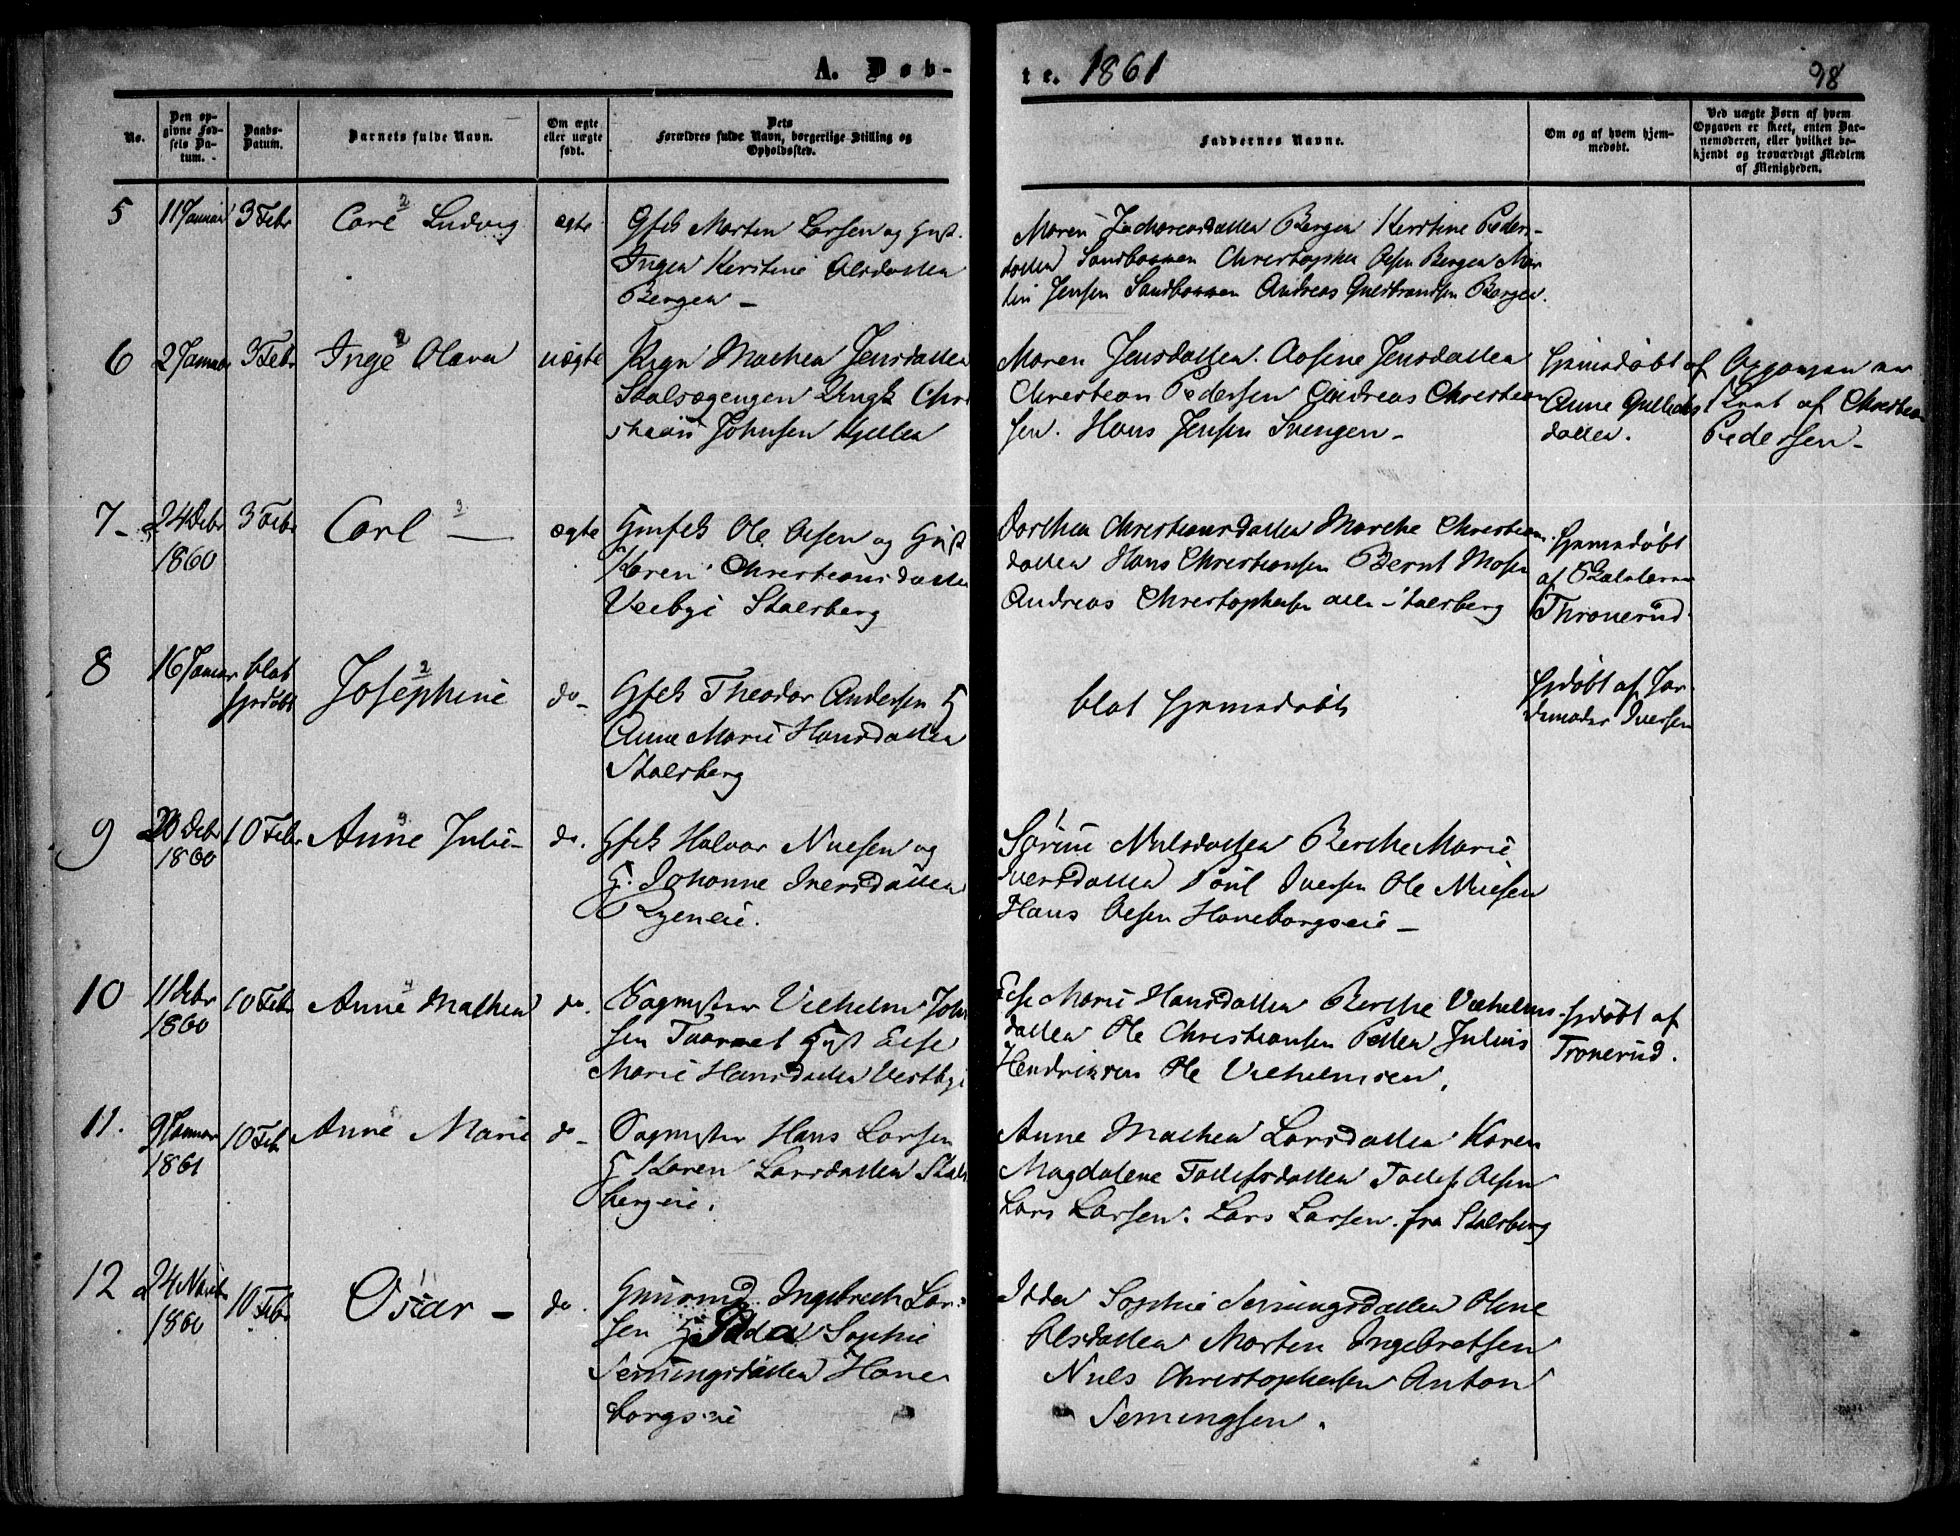 A. Døb-
te. 1861
98
No.
Den op-
givne Fød-
sels Da-
tum.
Daabs-
Datum.
Barnets fulde Navn.
Om ægte
eller uægte
født.
Dets
Forældres fulde Navn, borgerlige Stilling og
Opholdssted.
Faddernes Navne.
Om og af hvem hjem-
medøbt.
Ved uægte Børn af hvem
Opgaven er skeet, enten Bar-
nemoderen, eller hvilket be-
kjendt og troværdigt Medlem
af Menigheden.
5
11 Januar
3 Febr
Carl Ludvig
2
ægte
Gfsk Morten Larsen og Hust.
Inger Kerstine Olsdatter
Bergen –
Maren Zachariasdatter Bergen Kerstine Peders-
datter Sandbakken Christopher Olsen Bergen Mar
tin Jensen Sandbakken Andreas Guldbrandsen Bergen.
6
2 Januar
3 Febr
Inge Olava
2
uægte
Pign Mathea Jensdatter
Stalsægengen Ungk Chri
stian Johnsen Hjellen
Maren Jensdatter. Aosine Jensdatter
Christian Pedersen Andreas Christian
sen. Hans Jensen Svengen –
Hjemedøbt af
Anne Gulliks
datter.
Opgaven er
skeet af Christian
Pedersen –
7 –
24 Debr
1860
3 Febr
Carl —
3
ægte
Ole Olsen og Hust
Karen Christiansdatter
Veebye Stalsberg
Dorthea Christiansdatter Marthe Christians
datter Hans Christiansen Bernt Mosen
Andreas Christophersen alle Stalsberg
Hjemedøbt
af Skolelærer
Thronerud.
8
16 Januar
blot
hjdøbt
Josephine
2
do –
Gfsk Theodor Andersen H
Anne Marie Hansdatter
Stalsberg
blot Hjemedøbt
Hjdøbt af Jor-
demoder Iversen
9
20 Debr
1860
10 Febr
Anne Julie –
3
do.
Gfsk Halvor Nilsen og
H. Johanne Iversdatter
Ryeneie.
Sørine Nilsdatter Berthe Marie
Iversdatter Poul Iversen Ole Nilsen
Hans Olsen Haneborgseie –
10
11 Debr
1860
10 Febr
Anne Mathea
4
do.
Sagmester Vilhelm John
sen Taarnet Hust Else
Marie Hansdatter Vestbye
Else Marie Hansdatter Berthe Vilhelms
datter Ole Christiansen Petter Julius
Hendriksen Ole Vilhelmsen.
Hjdøbt af
Tronerud.
11.
9 Januar
1861
10 Feb
Anne Marie
do –
Sagmester Hans Larsen
H Karen Larsdatter Stals
bergeie.
Anne Mathea Larsdatter Karen
Magdalene Tollefsdatter Tollef Olsen
Lars Larsen. Lars Larsen. fra Stalsberg
12
24 Novbr
1860
10 Feb
Oscar –
11
do.
Huusmd Ingebreth Lar-
sen H Idda Sophie
Semmingsdatter Hane
borgseie
Idda Sophie Semingsdatter Oline
Olsdatter Morten Ingebretsen
Nils Christophersen Anton
Semingsen.